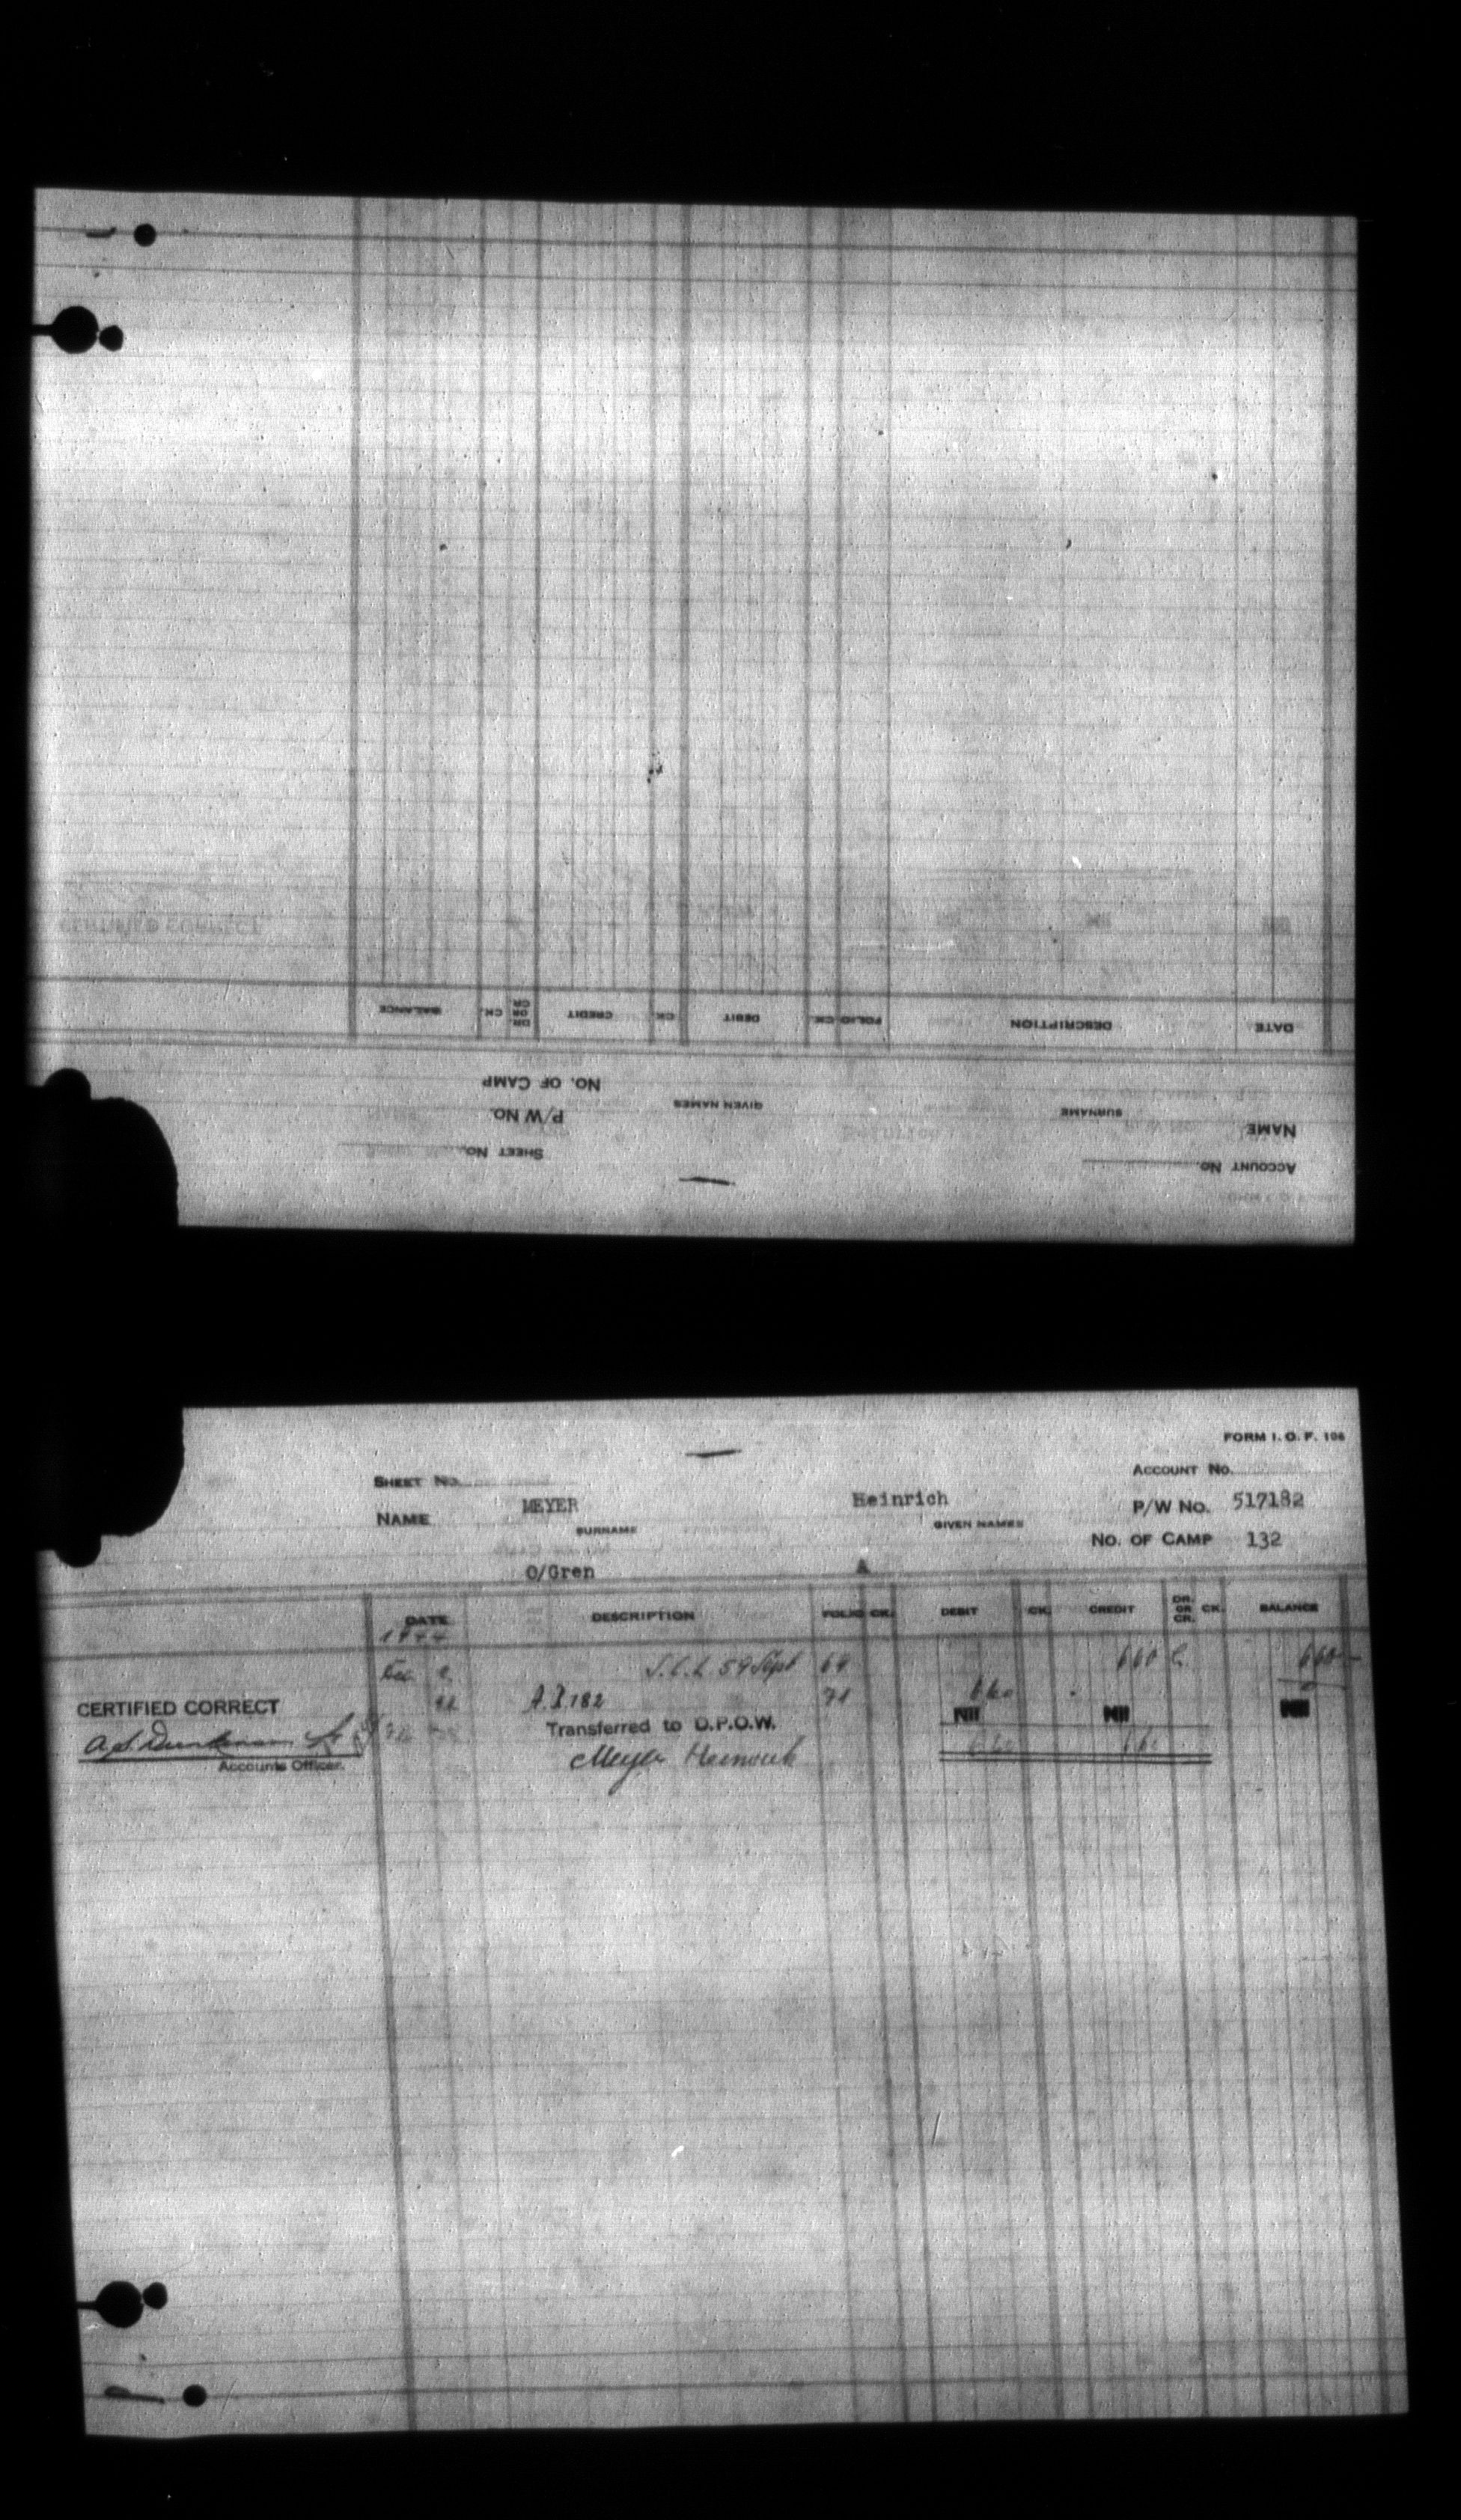 DATE DESCRIPTION FOLIO CK. DEBIT CK. CREDIT DR. OR CR. CK. BALANCE
NO. OF CAMP
GIVEN NAMES
SURNAME
P/W NO.
NAME
SHEET NO.
ACCOUNT NO.
FORM I. O. F. 106
SHEET NO.
ACCOUNT NO.
NAME MEYER Heinrich P/W NO. 517182
SURNAME GIVEN NAMES
NO. OF CAMP 132
O/Gren
DATE DESCRIPTION FOLIO CK. DEBIT CK. CREDIT DR. OR CR. CK. BALANCE
1944
59 Sept 64 660 660
CERTIFIED CORRECT A.I.182 71 660
Nil Nil Nil
Transferred to D.P.O.W.
660 660
Meyer Heinrich
Accounts Officer.